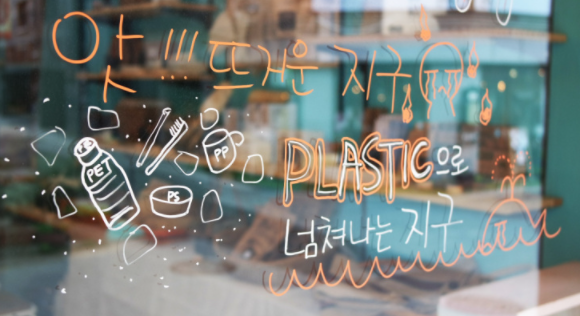 앗!!! 뜨거운 지구
PET
PP
PS
PLASTIC으로
넘쳐나는 지구